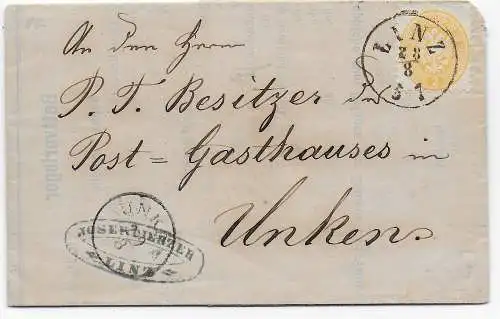 An den Herrn
LINZ
28
8
5 7
P. T. Besitzer des
Post = Gasthauses in
Unken
JOSEF
LINZ